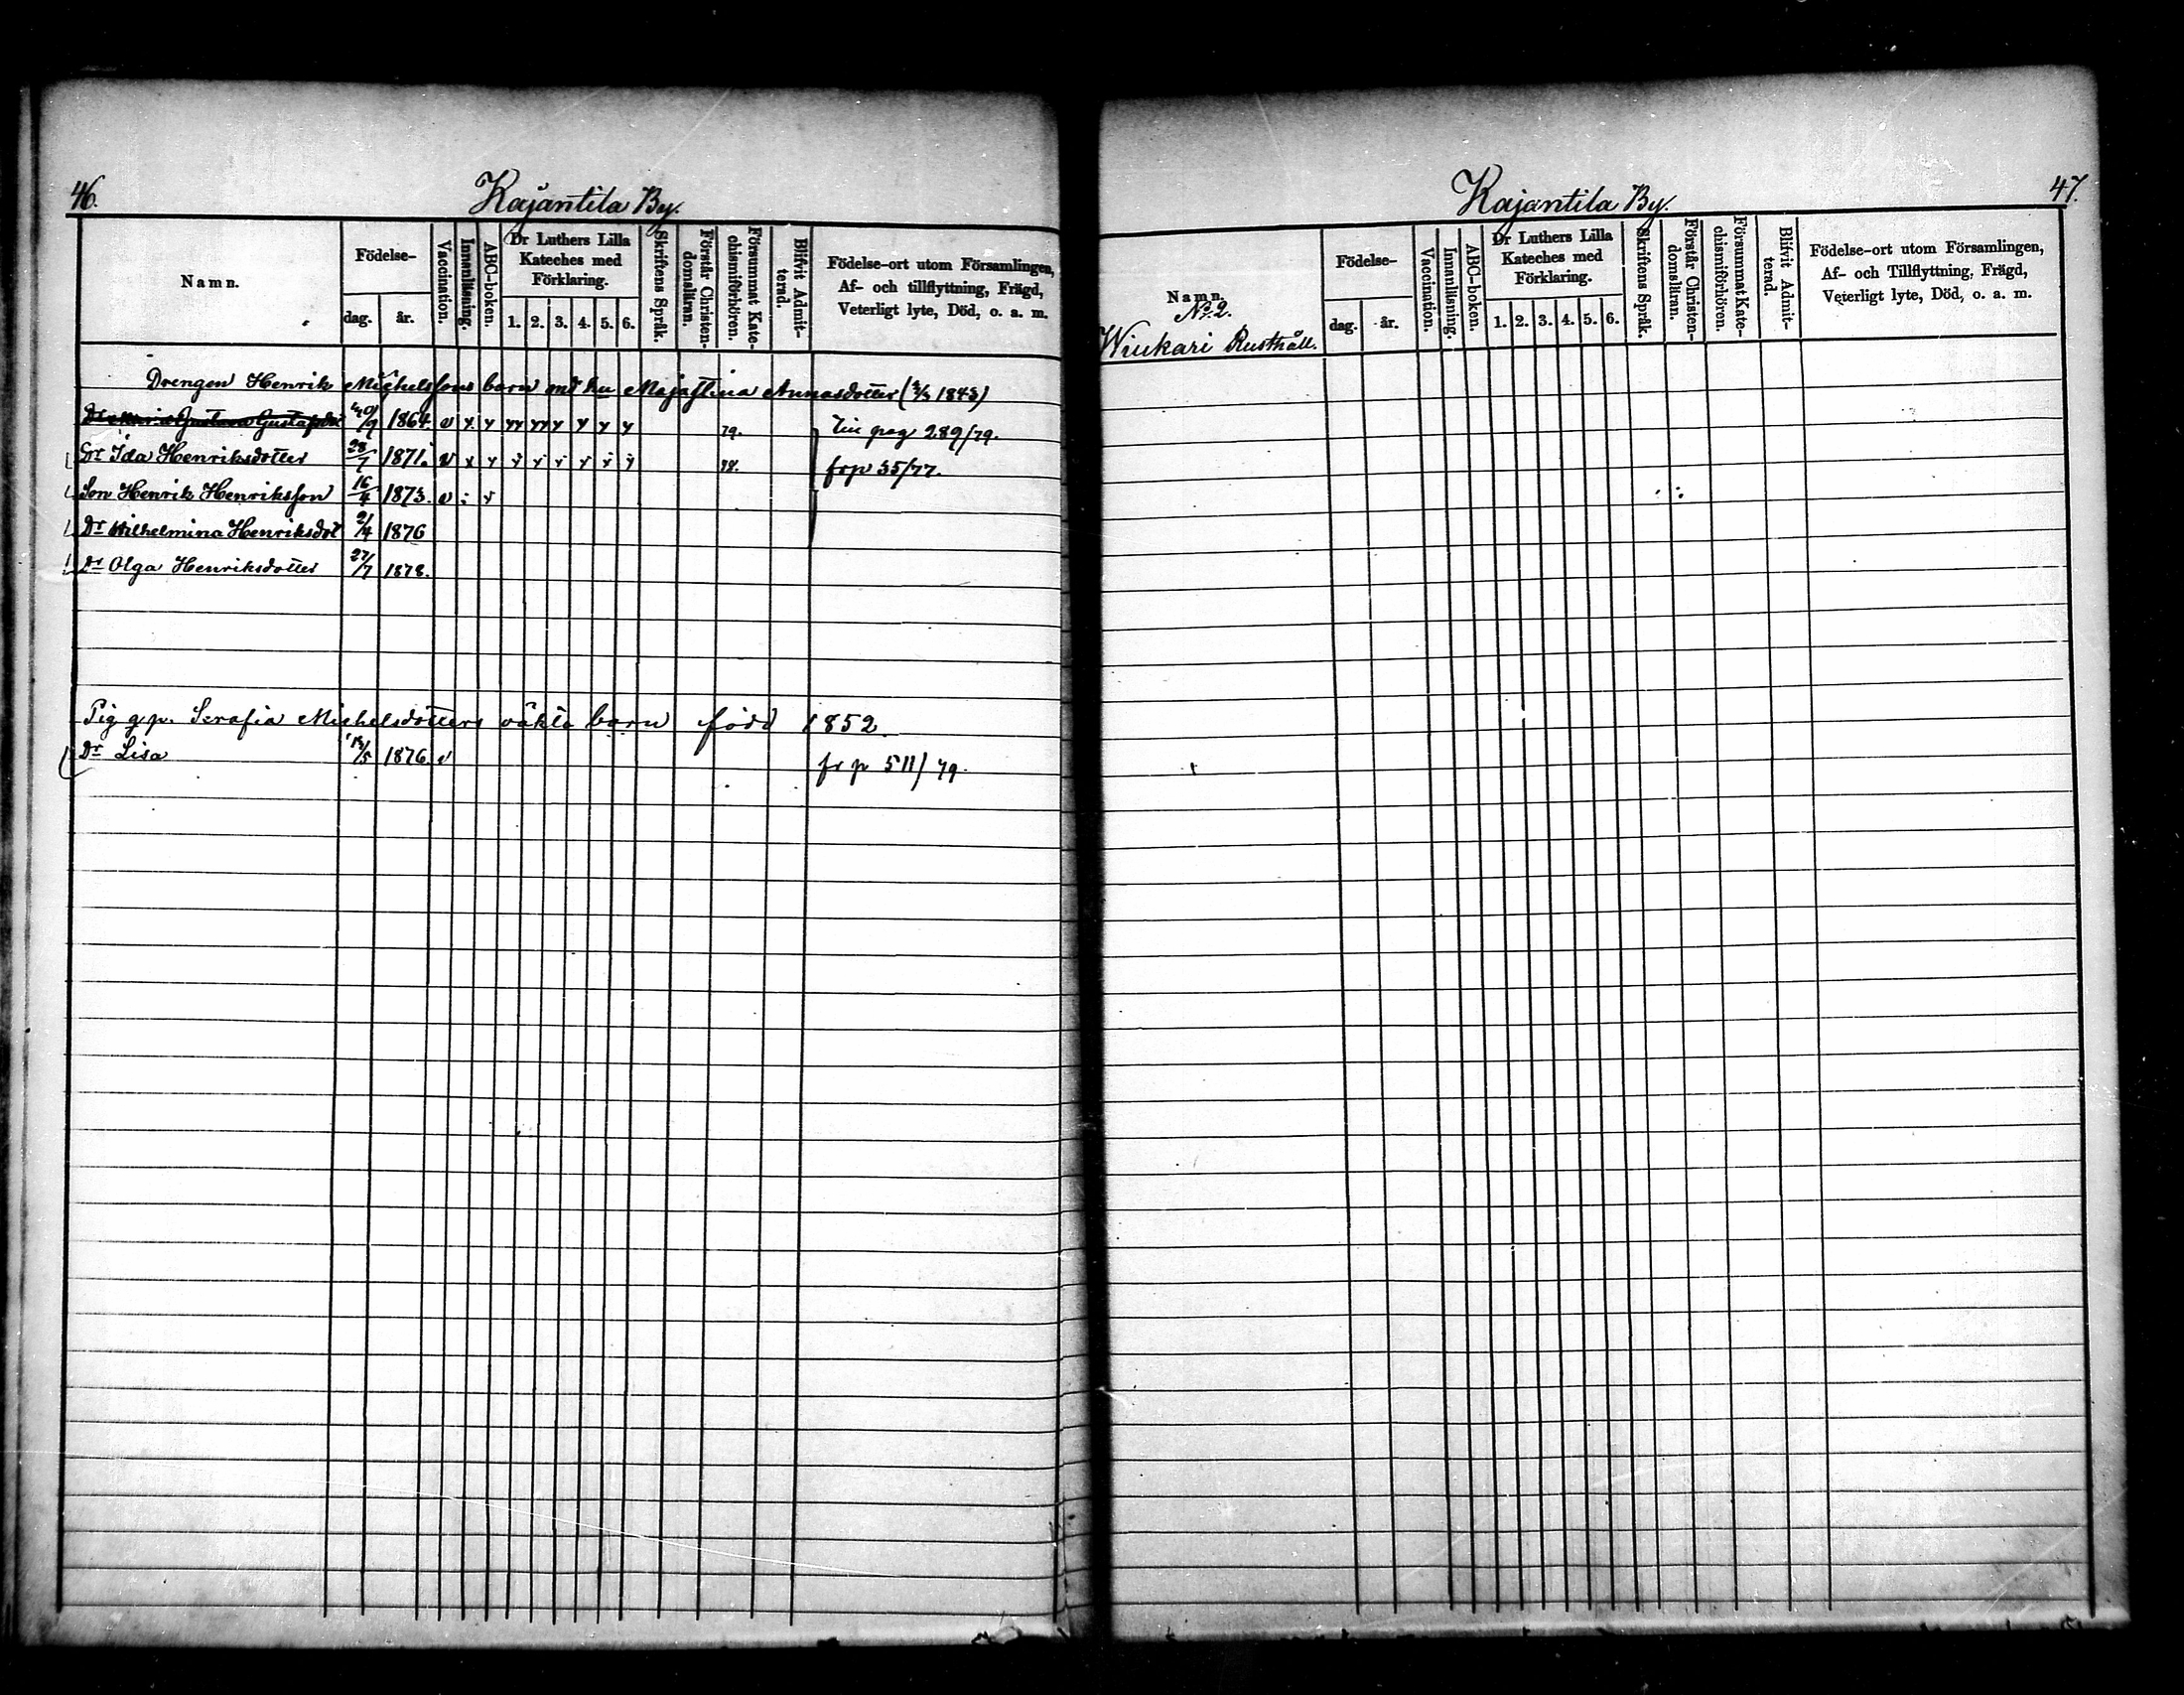 46.
Kajantila By.
Namn.
Födelse-
dag.
år.
Vaccination.
Innanläsning.
ABC-boken.
Dr Luthers Lilla Kateches med Förklaring.
1. 2. 3. 4. 5. 6.
Skriftens Språk.
Förstår Christendomsläran.
Försummat Katechismiförhören.
Blifvit Admitterad.
Födelse-ort utom Församlingen,
Af- och tillflyttning, Frägd,
Veterligt lyte, Död, o. a. m.
Drengen Henrik Michelssons barn med hu Majastina Annasdotter ( 1843)
Gustava Gustafsdot 1864. v y y yy yy y y y y 79. Till pag 289/79.
Dr Ida Henriksdotter 28/7 1871. v x y y y y y y y frp 35/77.
Son Henrik Henriksson 16/4 1873. v
Dr Wilhelmina Henriksdot 21/4 1876
Dr Olga Henriksdotter 27/7 1878.
Pig g.p. Serafia Michelsdotters oäkta barn född 1852.
Dr Lisa 1876 v fr p 511/79.
47.
Kajantila By.
Namn.
Födelse-
dag.
år.
Vaccination.
Innanläsning.
ABC-boken.
Dr Luthers Lilla Kateches med Förklaring.
1. 2. 3. 4. 5. 6.
Skriftens Språk.
Förstår Christendomsläran.
Försummat Katechismiförhören.
Blifvit Admitterad.
Födelse-ort utom Församlingen,
Af- och Tillflyttning, Frägd,
Veterligt lyte, Död, o. a. m.
No 2.
Wiukari Rusthåll.